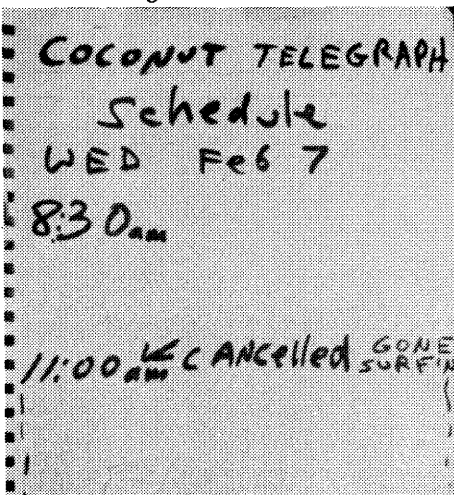 COCONUT TELEGRAPH
Schedule
WED Feb 7
8:30am
11:00am CANCelled GONE SURF'N